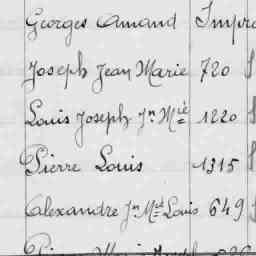 Georges Amand Impro
Joseph Jean Marie 720
Louis Joseph Jn Mie 1220
Pierre Louis 1315
Alexandre Jn Mie Louis 649